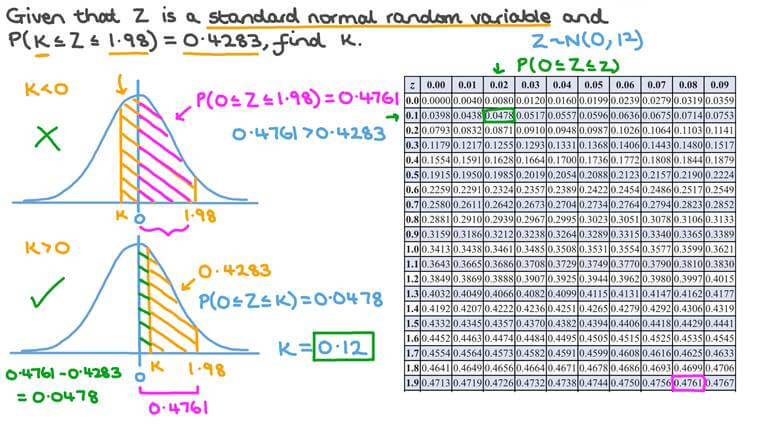 Given that Z is a standard normal random variable and
P(K ≤ Z ≤ 1.98) = 0.4283, find K.
Z~N(0,1²)
K<0
P(0≤Z≤1.98)=0.4761
0.4761>0.4283
K 0 1.98
K>0
0.4283
P(0≤Z≤K)=0.0478
K = 0.12
K 1.98
0
0.4761-0.4283
= 0.0478
0.4761
P(0≤Z≤z)
z 0.00 0.01 0.02 0.03 0.04 0.05 0.06 0.07 0.08 0.09
0.0 0.0000 0.0040 0.0080 0.0120 0.0160 0.0199 0.0239 0.0279 0.0319 0.0359
0.1 0.0398 0.0438 0.0478 0.0517 0.0557 0.0596 0.0636 0.0675 0.0714 0.0753
0.2 0.0793 0.0832 0.0871 0.0910 0.0948 0.0987 0.1026 0.1064 0.1103 0.1141
0.3 0.1179 0.1217 0.1255 0.1293 0.1331 0.1368 0.1406 0.1443 0.1480 0.1517
0.4 0.1554 0.1591 0.1628 0.1664 0.1700 0.1736 0.1772 0.1808 0.1844 0.1879
0.5 0.1915 0.1950 0.1985 0.2019 0.2054 0.2088 0.2123 0.2157 0.2190 0.2224
0.6 0.2259 0.2291 0.2324 0.2357 0.2389 0.2422 0.2454 0.2486 0.2517 0.2549
0.7 0.2580 0.2611 0.2642 0.2673 0.2704 0.2734 0.2764 0.2794 0.2823 0.2852
0.8 0.2881 0.2910 0.2939 0.2967 0.2995 0.3023 0.3051 0.3078 0.3106 0.3133
0.9 0.3159 0.3186 0.3212 0.3238 0.3264 0.3289 0.3315 0.3340 0.3365 0.3389
1.0 0.3413 0.3438 0.3461 0.3485 0.3508 0.3531 0.3554 0.3577 0.3599 0.3621
1.1 0.3643 0.3665 0.3686 0.3708 0.3729 0.3749 0.3770 0.3790 0.3810 0.3830
1.2 0.3849 0.3869 0.3888 0.3907 0.3925 0.3944 0.3962 0.3980 0.3997 0.4015
1.3 0.4032 0.4049 0.4066 0.4082 0.4099 0.4115 0.4131 0.4147 0.4162 0.4177
1.4 0.4192 0.4207 0.4222 0.4236 0.4251 0.4265 0.4279 0.4292 0.4306 0.4319
1.5 0.4332 0.4345 0.4357 0.4370 0.4382 0.4394 0.4406 0.4418 0.4429 0.4441
1.6 0.4452 0.4463 0.4474 0.4484 0.4495 0.4505 0.4515 0.4525 0.4535 0.4545
1.7 0.4554 0.4564 0.4573 0.4582 0.4591 0.4599 0.4608 0.4616 0.4625 0.4633
1.8 0.4641 0.4649 0.4656 0.4664 0.4671 0.4678 0.4686 0.4693 0.4699 0.4706
1.9 0.4713 0.4719 0.4726 0.4732 0.4738 0.4744 0.4750 0.4756 0.4761 0.4767